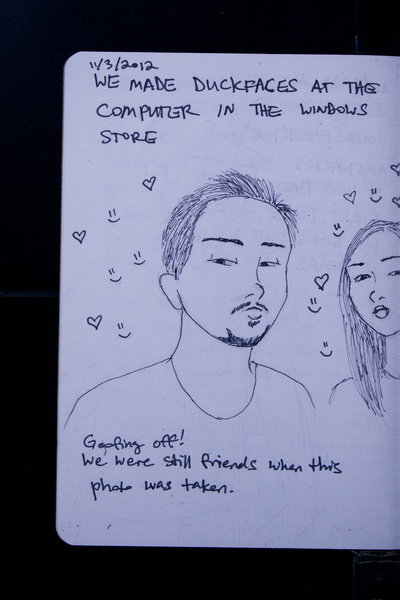 11/3/2012
WE MADE DUCKFACES AT THE
COMPUTER IN THE WINDOWS
STORE
Goofing off!
We were still friends when this
photo was taken.